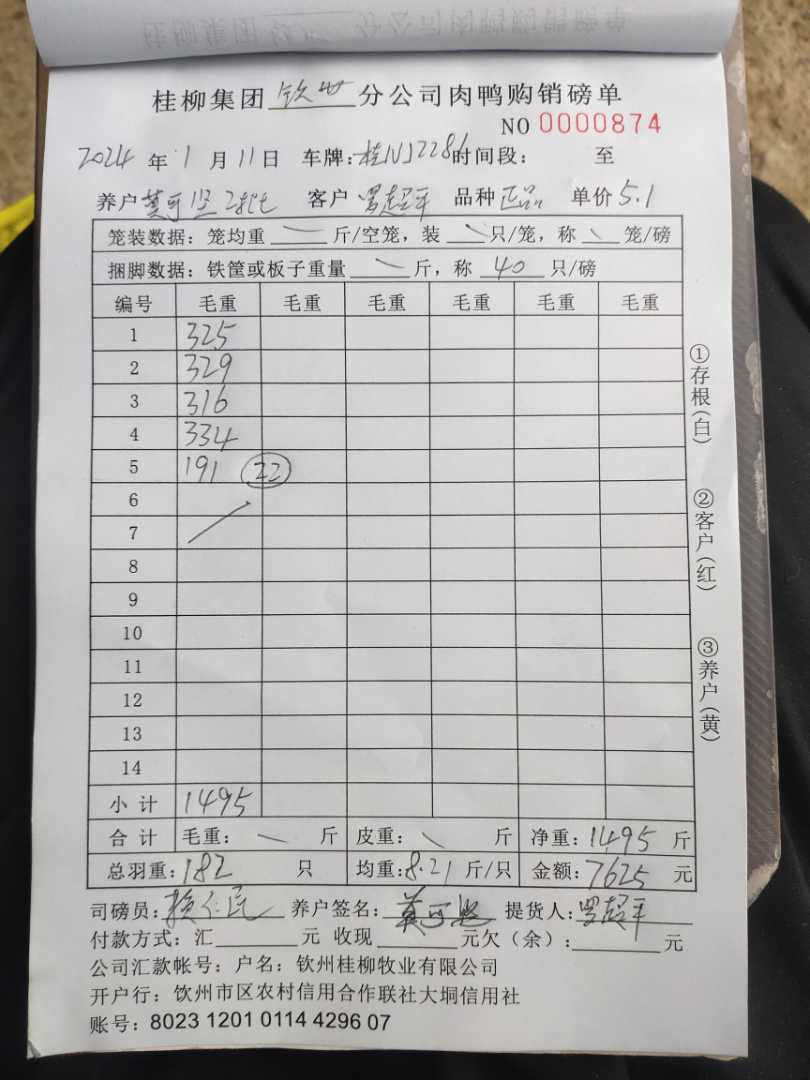 桂柳集团 钦州 分公司肉鸭购销磅单
NO 0000874
2024 年 1 月 11 日 车牌:桂NJ2286 时间段: 至
养户 莫可坚 2批 客户 罗超平 品种 正品 单价 5.1
笼装数据: 笼均重 斤/空笼, 装 只/笼, 称 笼/磅
捆脚数据: 铁筐或板子重量 斤, 称 40 只/磅
编号 毛重 毛重 毛重 毛重 毛重 毛重
1 325
2 329
3 316
4 334
5 191 22
6
7
8
9
10
11
12
13
14
小计 1495
合计 毛重: 斤 皮重: 斤 净重: 1495 斤
总羽重: 182 只 均重: 8.21 斤/只 金额: 7625 元
司磅员: 养户签名: 莫可坚 提货人: 罗超平
付款方式: 汇 元 收现 元欠(余): 元
公司汇款帐号: 户名: 钦州桂柳牧业有限公司
开户行: 钦州市区农村信用合作联社大垌信用社
账号: 8023 1201 0114 4296 07
①存根(白)
②客户(红)
③养户(黄)